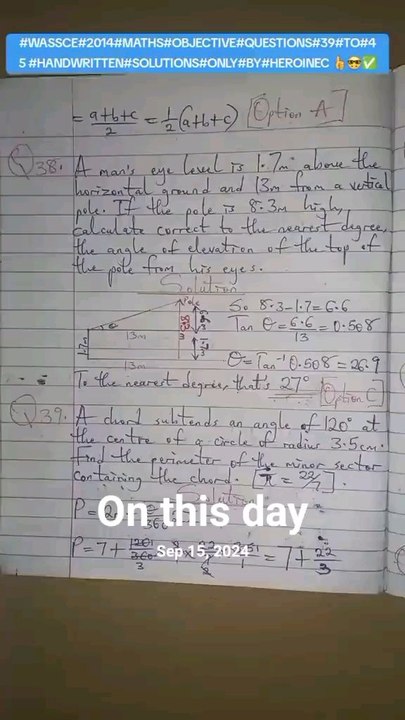 #WASSCE#2014#MATHS#OBJECTIVE#QUESTIONS#39#TO#4
5 #HANDWRITTEN#SOLUTIONS#ONLY#BY#HEROINEC 👆😎✅
= a+b+c/2 = 1/2(a+b+c) [Option A]
Q38. A man's eye level is 1.7m above the
horizontal ground and 13m from a vertical
pole. If the pole is 8.3m high,
calculate correct to the nearest degree,
the angle of elevation of the top of
the pole from his eyes.
Solution
Pole
So 8.3-1.7=6.6
Tan θ = 6.6/13 = 0.508
θ
13m
1.7m
13m
θ = Tan⁻¹ 0.508 = 26.9
To the nearest degree, that's 27° [Option C]
Q39. A chord subtends an angle of 120° at
the centre of a circle of radius 3.5cm.
Find the perimeter of the minor sector
containing the chord. [π = 22/7].
Solution
P = 2
360
On this day
Sep 15, 2024
P = 7 +
= 7 + 22/3